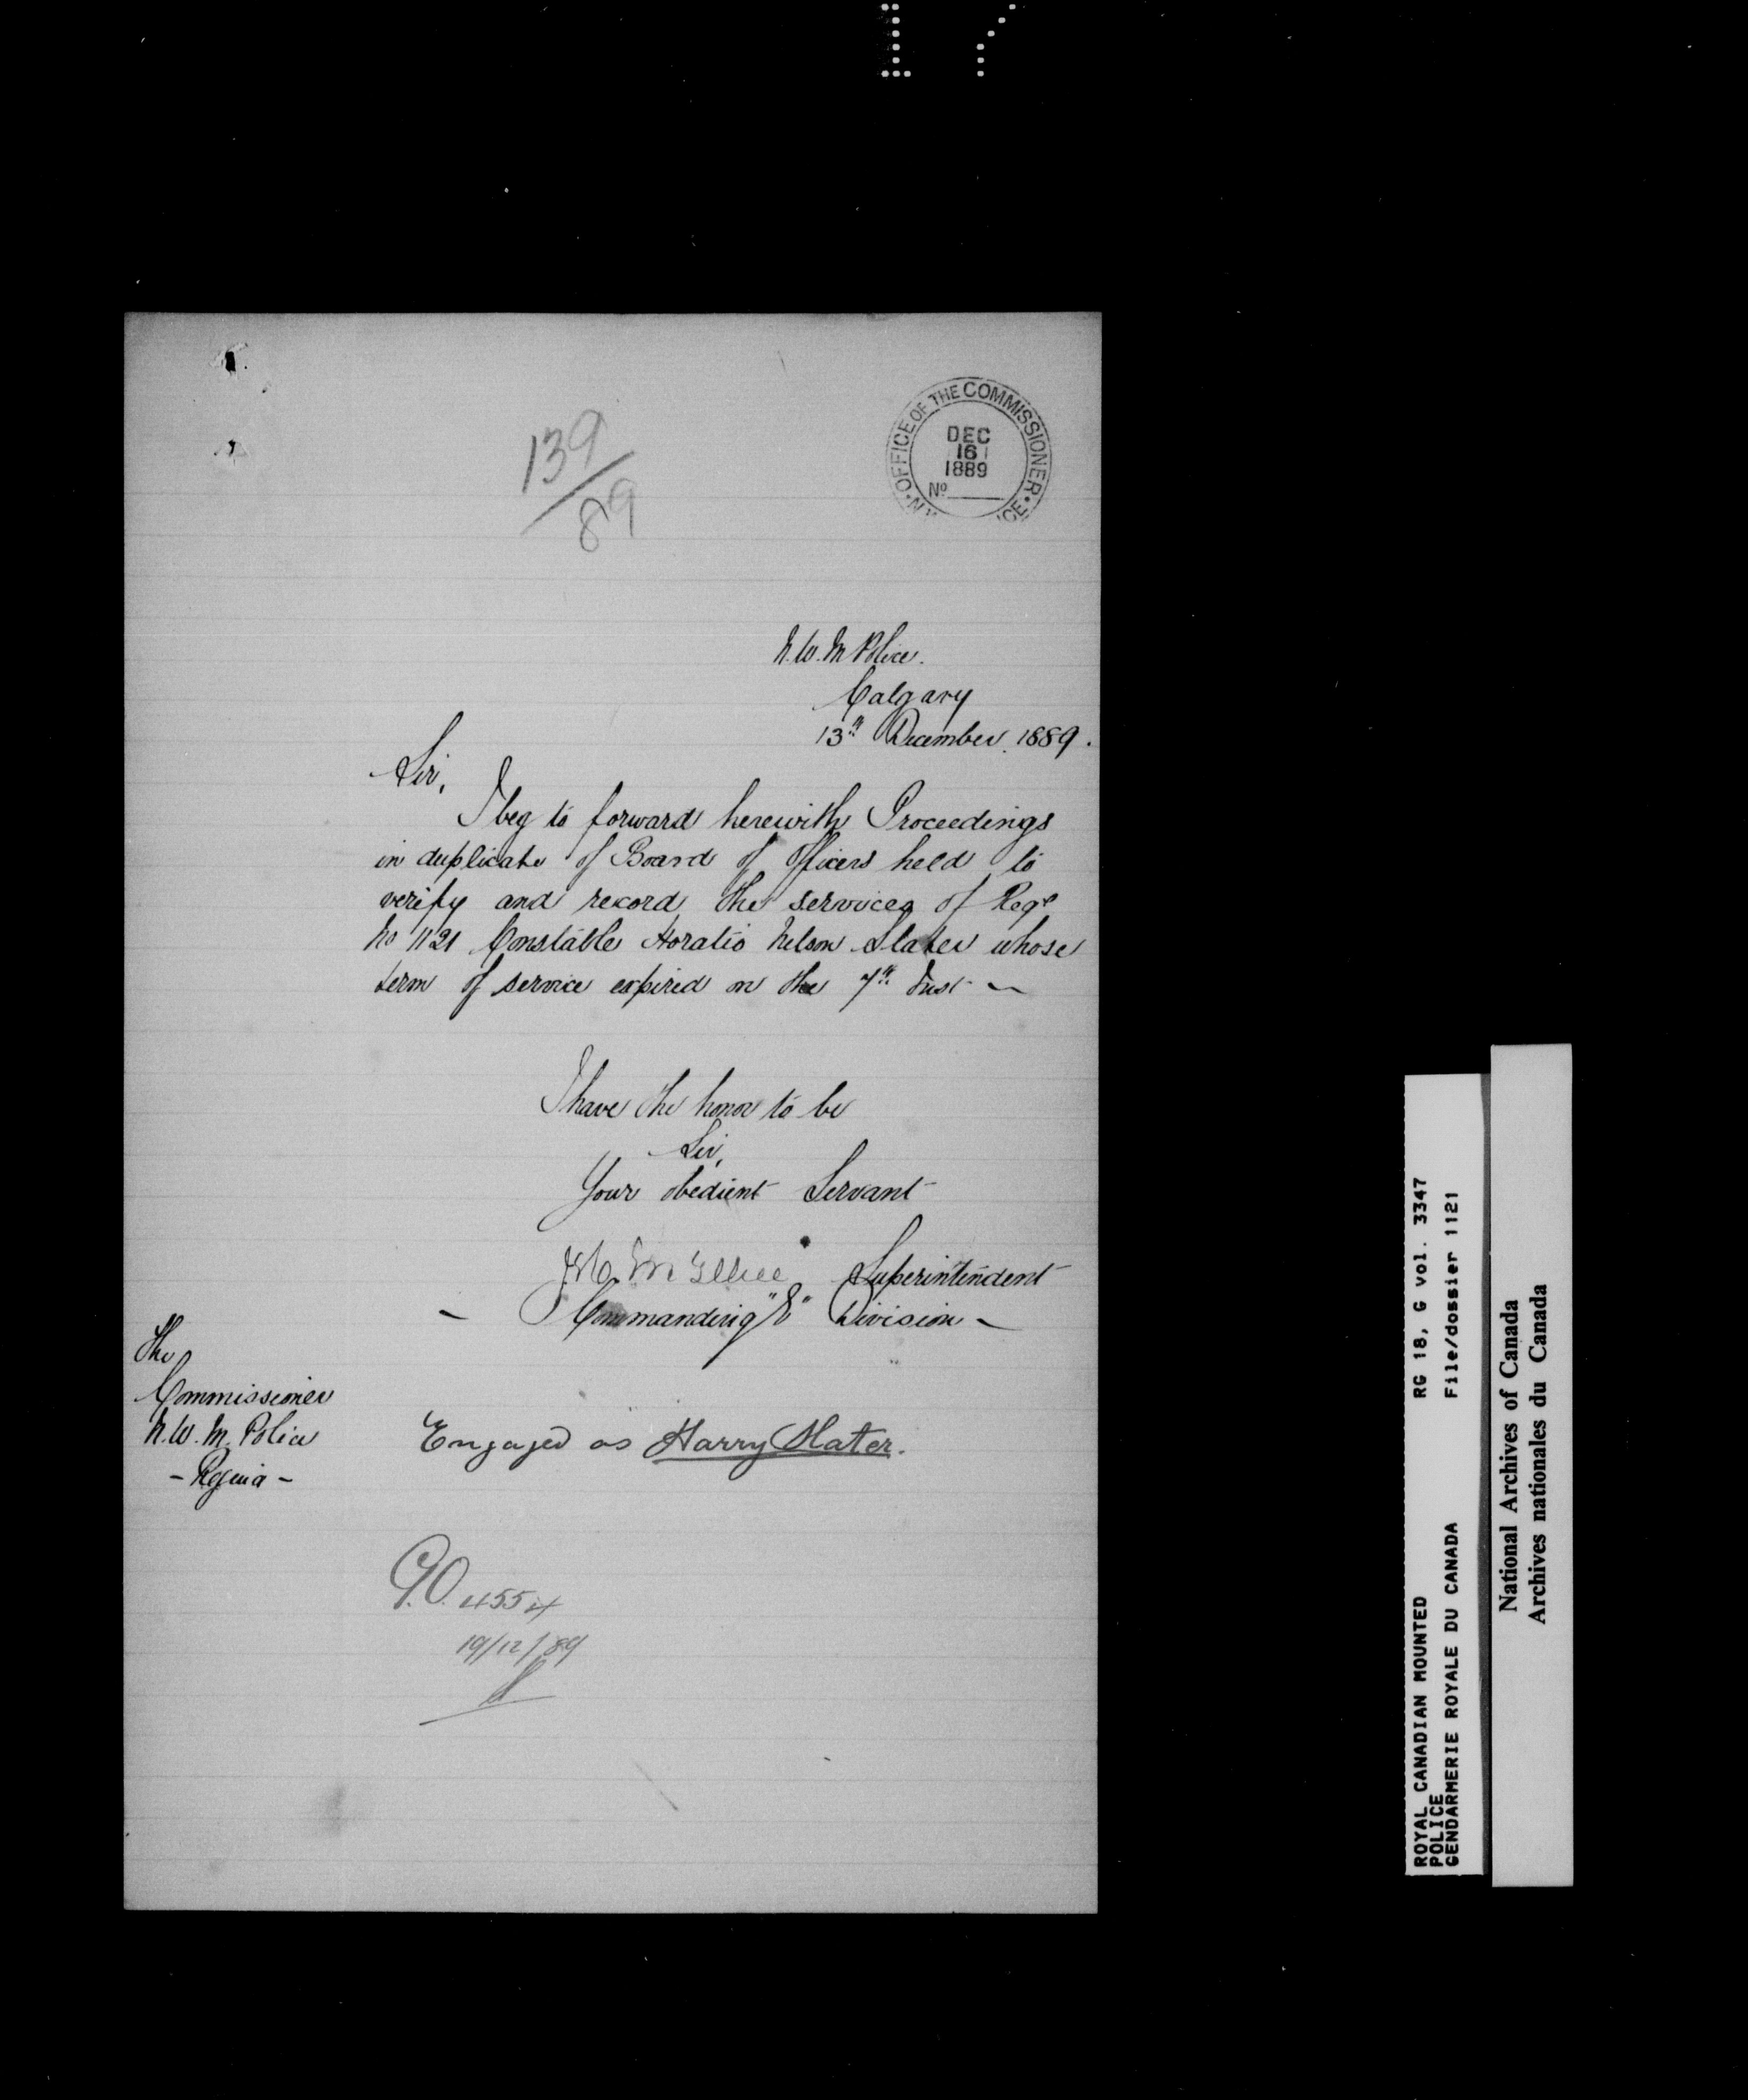 139/89
OFFICE OF THE COMMISSIONER
DEC
16
1889
No
N.W.M Police.
Calgary
13th December. 1889.
Sir,
I beg to forward herewith Proceedings
in duplicate of Board of Officers held to
verify and record the services of Regl
No 1121 Constable Horatio Nelson Slater whose
term of service expired on the 7th Inst -
I have the honor to be
Sir,
Your obedient Servant
Superintendent
- Commanding "E" Division -
The
Commissioner
N.W.M. Police
- Regina -
Engaged as Harry Slater.
G.O. 4554
19/12/89
ROYAL CANADIAN MOUNTED
POLICE
GENDARMERIE ROYALE DU CANADA
RG 18, G vol. 3347
File/dossier 1121
National Archives of Canada
Archives nationales du Canada